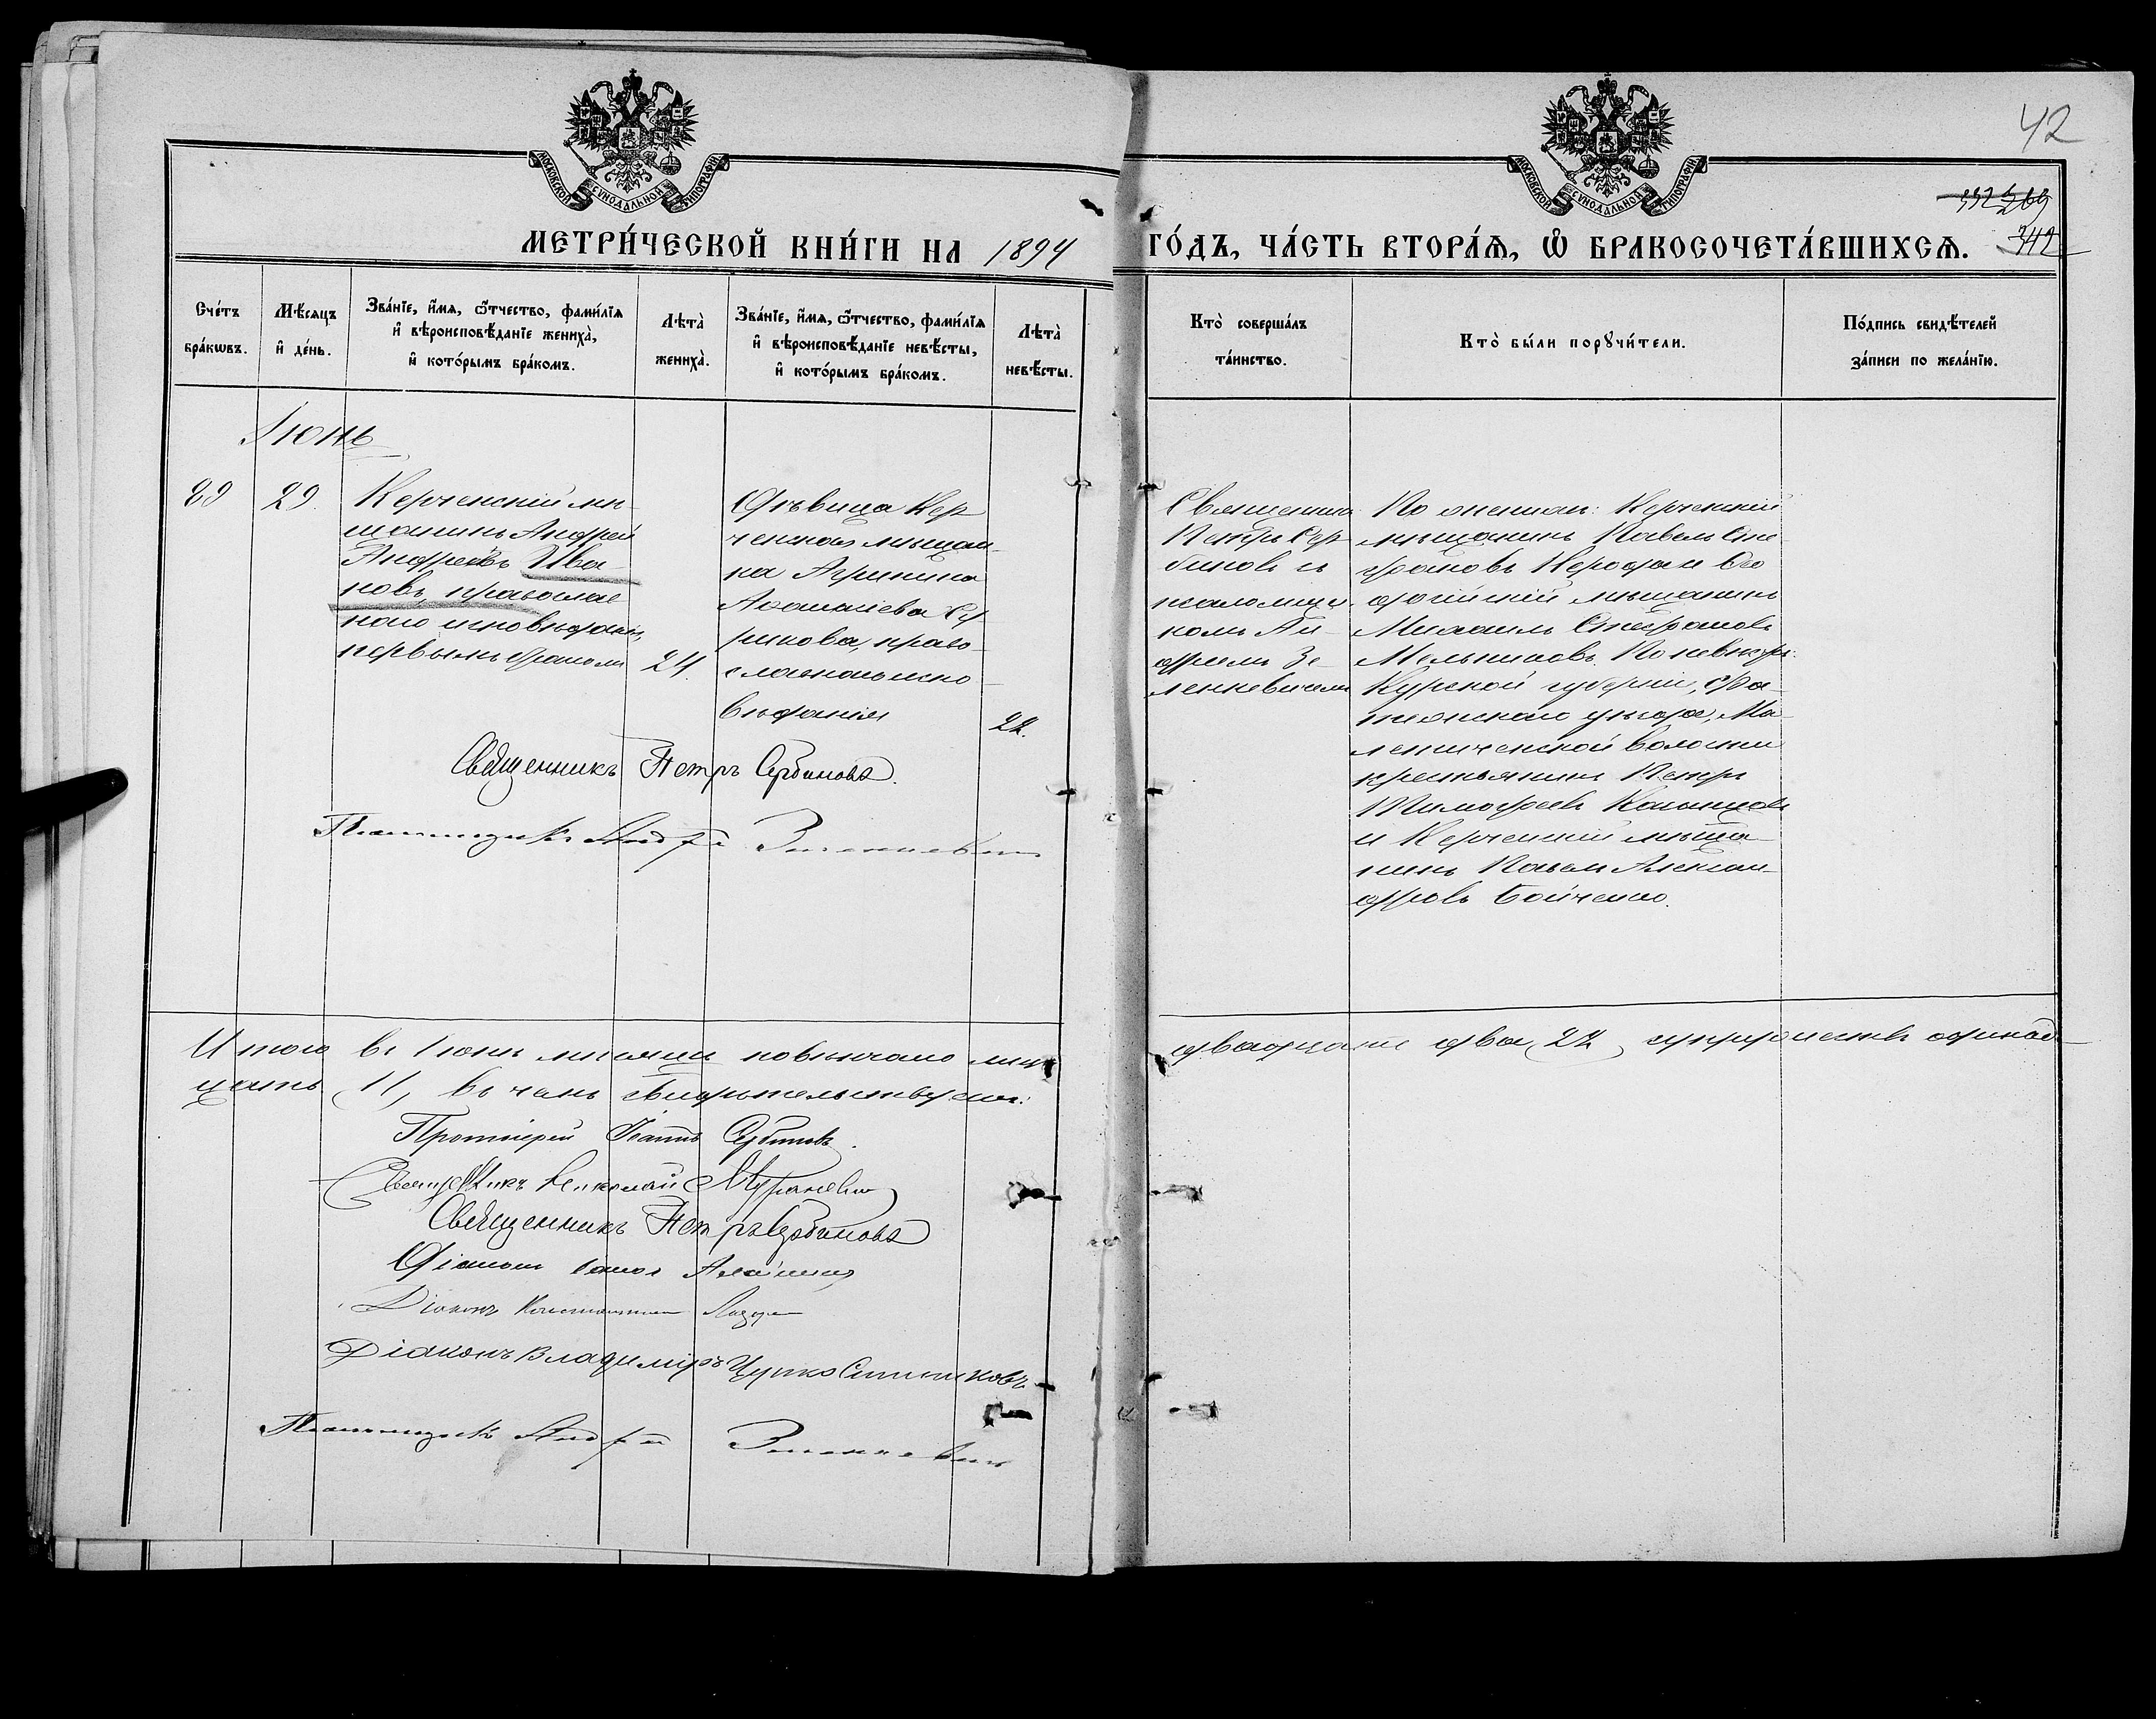 42
269
342
МОСКОВСКОЙ СУНОДАЛЬНОЙ ТИПОГРАФІИ
МОСКОВСКОЙ СУНОДАЛЬНОЙ ТИПОГРАФІИ
МЕТРИ́ЧЕСКОЙ КНИ́ГИ НА 1894 ГО́ДЪ, ЧА́СТЬ ВТОРА́Ѧ, Ѽ БРАКОСОЧЕТА́ВШИХСѦ.
Сче́тъ бра́кѡвъ.
Мѣ́сяцъ и҆ де́нь.
Зва́нїе, и҆́мѧ, ѻ҆́тчество, фами́лїѧ
и҆ вѣроисповѣ́данїе жениха̀,
и҆ кото́рымъ бра́комъ.
Лѣта̀ жениха̀.
Зва́нїе, и҆́мѧ, ѻ҆́тчество, фами́лїѧ
и҆ вѣроисповѣ́данїе невѣ́сты,
и҆ кото́рымъ бра́комъ.
Лѣта̀ невѣ́сты.
Кто̀ соверша́лъ та́инство.
Кто̀ бы́ли порꙋчи́тели.
По́дпись свидѣ́телей
за́писи по жела́нїю.
Іюнь
89
29.
Керченскій мѣ-
щанинъ Андрей
Андреевъ Ива-
новъ, православ
наго исповѣданія,
первымъ бракомъ
24.
Дѣвица Кер
ченская мѣщан-
ка Агрипина
Аѳанасіева
рикова, право-
славнаго испо-
вѣданія
22.
Священникъ
Петръ Сер-
биновъ съ
псаломщи-
комъ Ан-
дреемъ Зе-
ленкевичемъ
По женихѣ: Керченскій
мѣщанинъ Павелъ Сте-
фановъ и Ѳео
досійскій мѣщанинъ
Михаилъ Стефановъ
Мельниковъ. По невѣстѣ:
Курской губерніи, Фа-
тежскаго уѣзда,
волости
крестьянинъ Петръ
Тимофеевъ
и Керченскій мѣща-
нинъ Павелъ Алексан-
дровъ Бойченко.
Священникъ Петръ Сербиновъ.
Псаломщикъ Андрей Зеленкевичъ
Итого въ Іюнѣ мѣсяцѣ повѣнчано лицъ двадцать два, 22, супружествъ одинад-
цать 11, въ чемъ свидѣтельствуемъ:
Протоіерей Іоаннъ Сербиновъ.
Священникъ Николай
Священникъ Петръ Сербиновъ
Діаконъ
Діаконъ Константинъ
Діаконъ Владиміръ
Псаломщикъ Андрей Зеленкевичъ